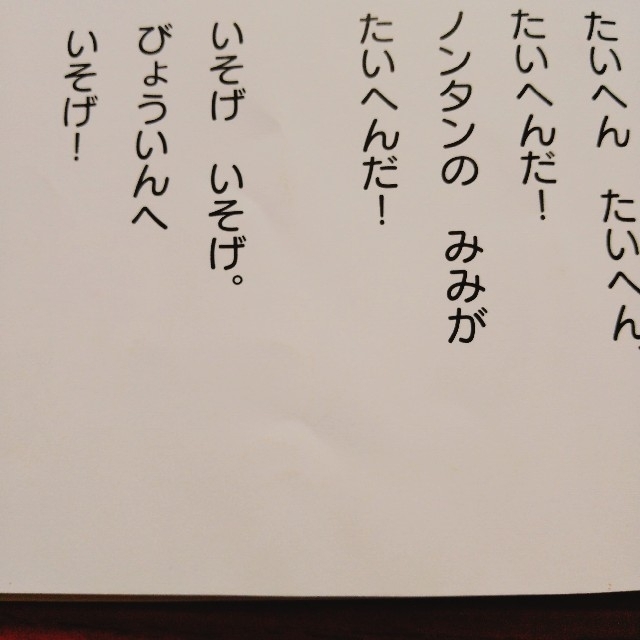 たいへん たいへん
たいへんだ！
ノンタンの みみが
たいへんだ！
いそげ いそげ。
びょういんへ
いそげ！